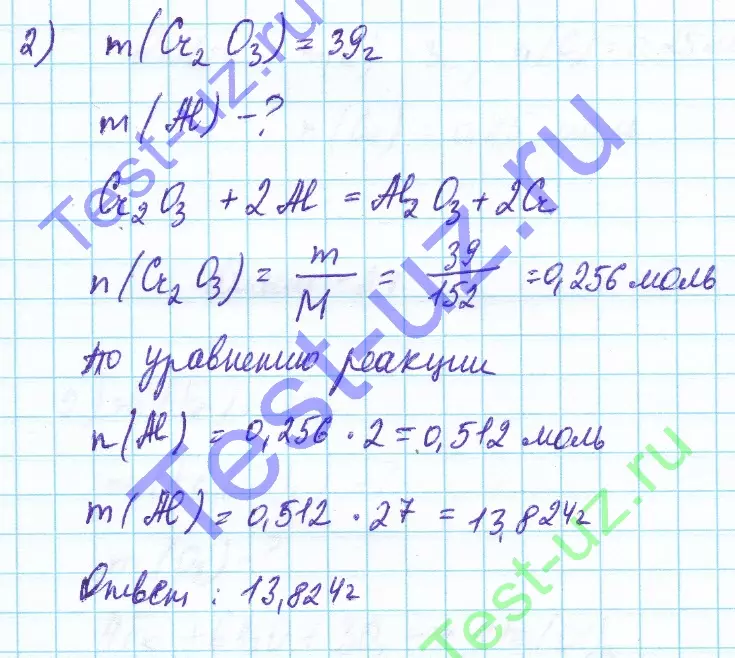 2) m(Cr2O3) = 39г
m(Al) - ?
Cr2O3 + 2Al = Al2O3 + 2Cr
n(Cr2O3) = m/M = 39/152 = 0,256 моль
По уравнению реакции
n(Al) = 0,256 · 2 = 0,512 моль
m(Al) = 0,512 · 27 = 13,824г
Ответ: 13,824г
Test-uz.ru
Test-uz.ru
Test-uz.ru